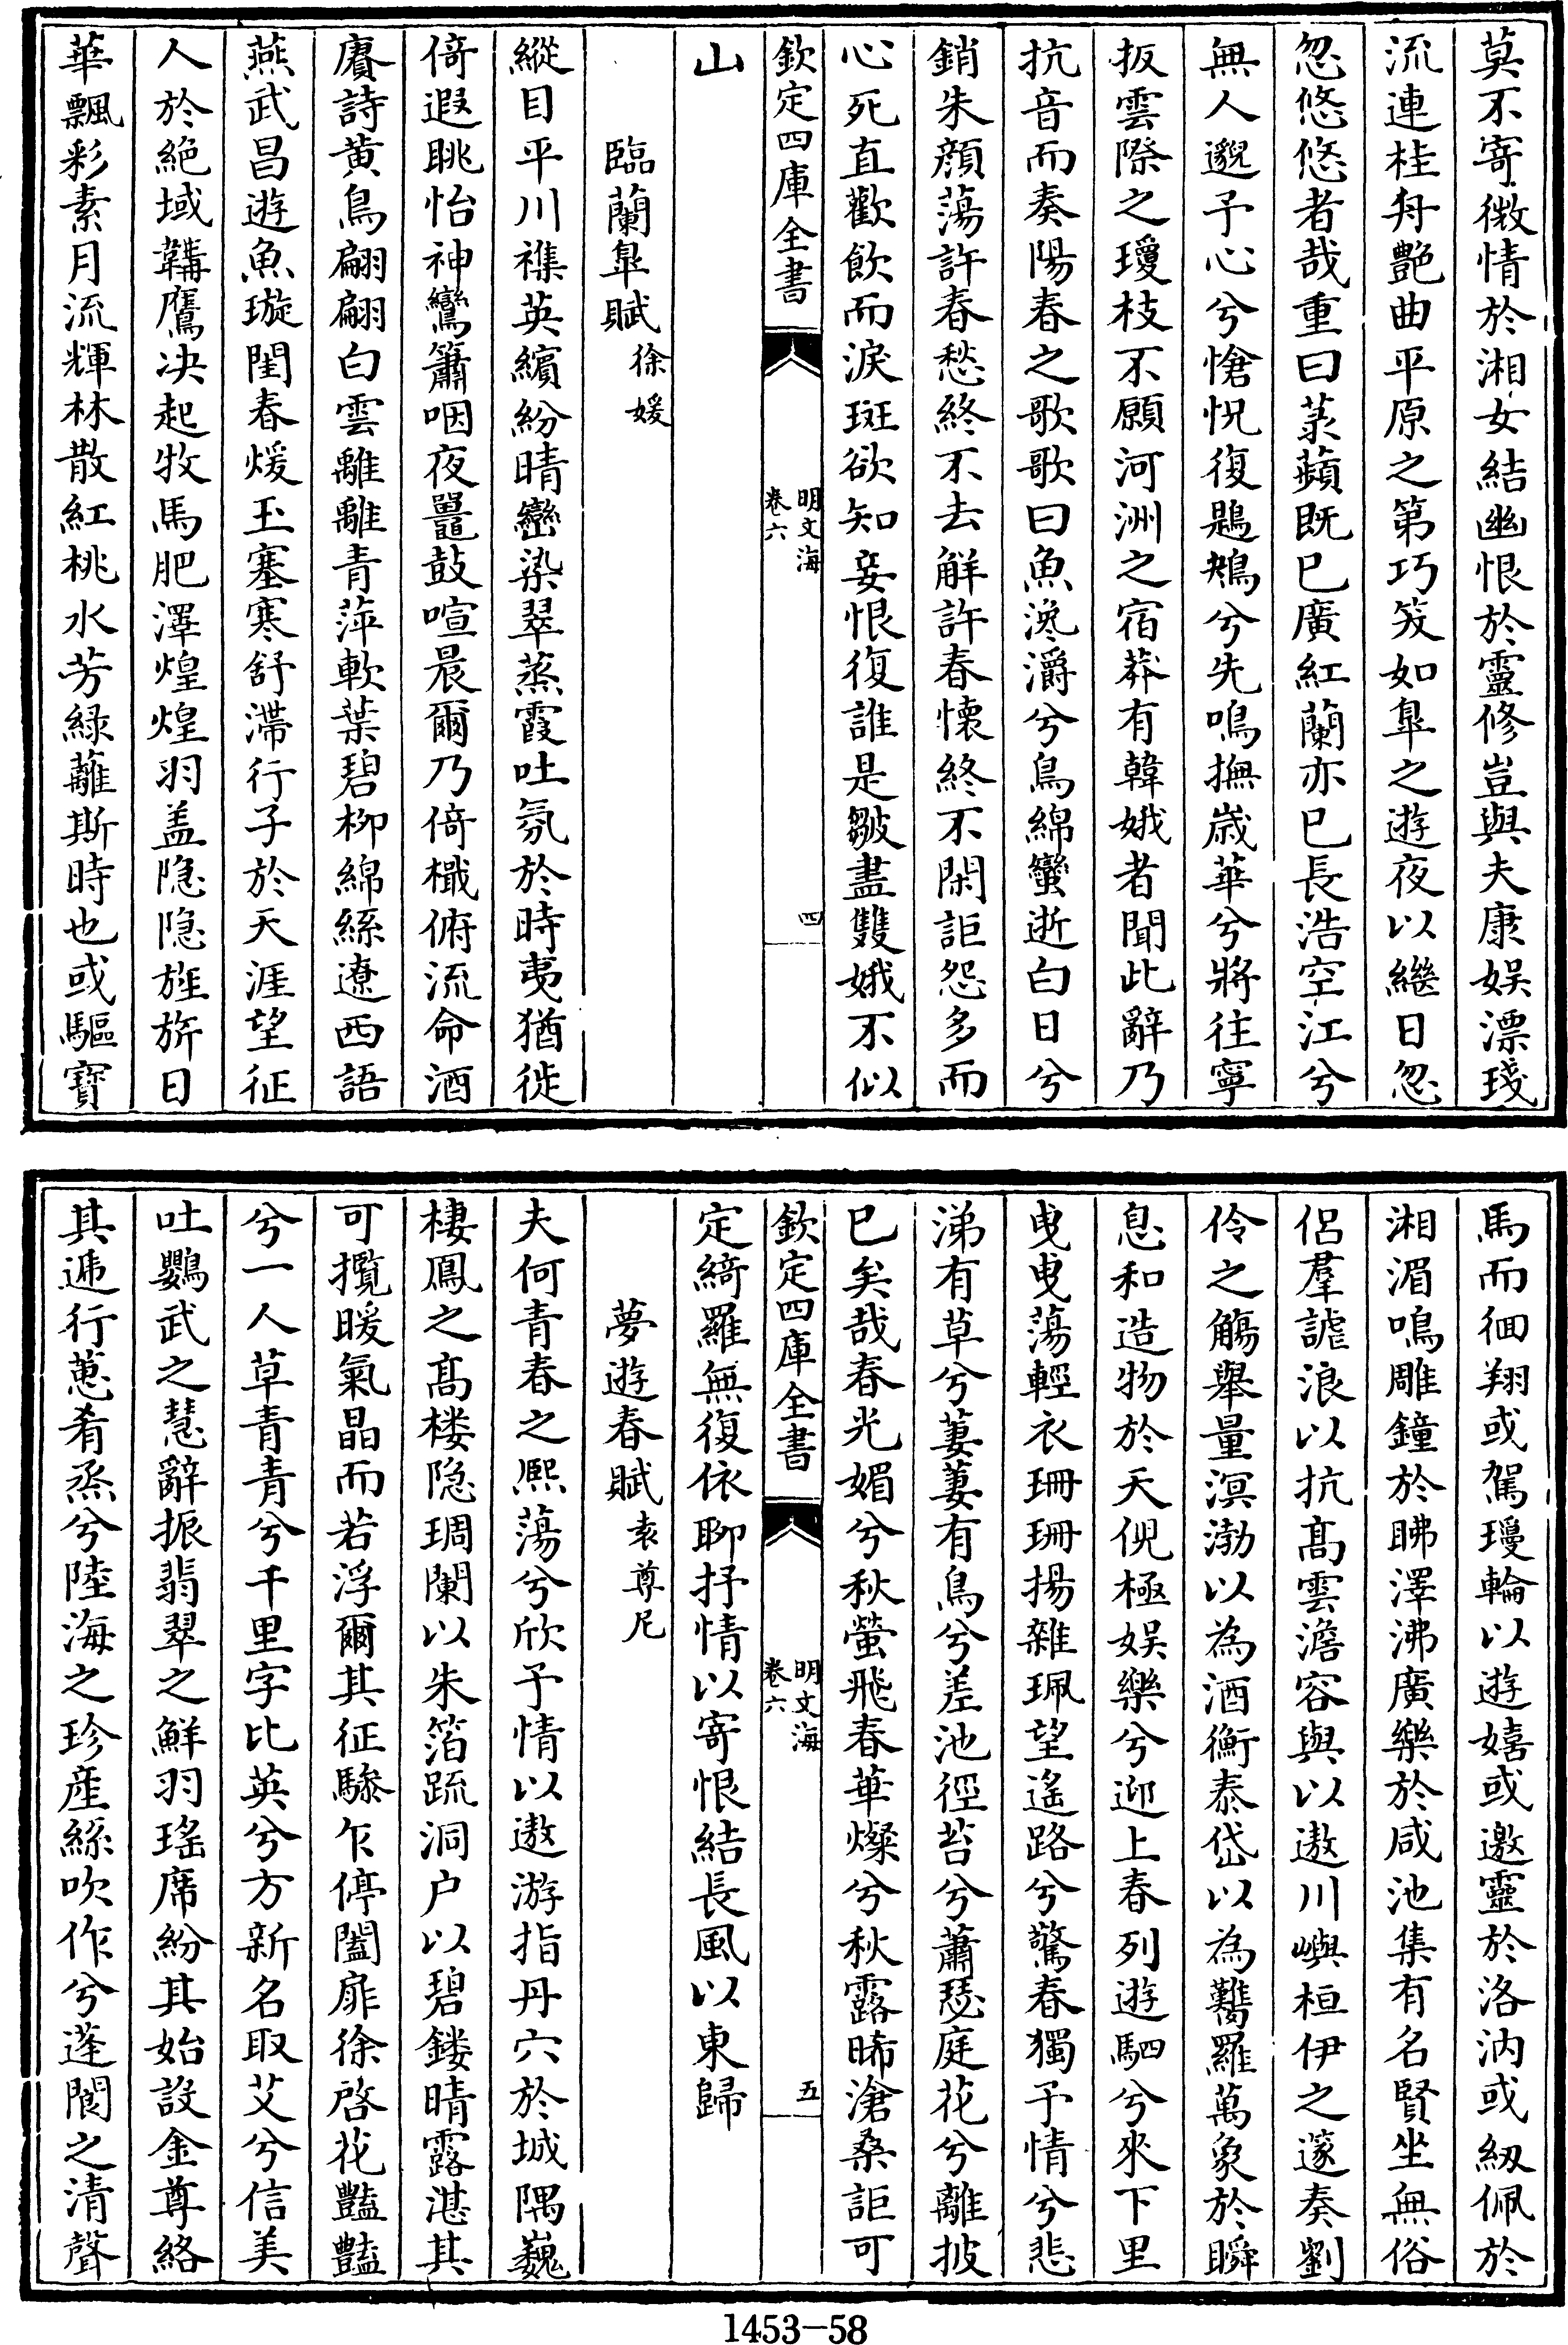 莫不寄微情於湘女結幽恨於靈修豈與夫康娛漂琖
流連桂舟艷曲平原之第巧笑如臯之遊夜以繼日忽
忽悠悠者哉重曰菉蘋既已廣紅蘭亦已長浩空江兮
無人邈予心兮愴怳復鶗鴂兮先鳴撫歲華兮將往寧
扳雲際之瓊枝不願河洲之宿莽有韓娥者聞此辭乃
抗音而奏陽春之歌歌曰魚瀺灂兮鳥綿蠻逝白日兮
銷朱顔蕩許春愁終不去解許春懐終不閑詎怨多而
心死直歡飲而淚斑欲知妾恨復誰是皺盡雙娥不似
欽定四庫全書
明文海
卷六
四
山
臨蘭臯賦
徐媛
縱目平川襍英繽紛晴巒染翠蒸霞吐氛於時夷猶徙
倚遐眺怡神鸞簫咽夜鼉鼓喧晨爾乃倚檝俯流命酒
賡詩黄鳥翩翩白雲離離青萍軟葉碧栁綿絲遼西語
燕武昌遊魚璇閨春煖玉塞寒舒滯行子於天涯望征
人於絶域鞲鷹决起牧馬肥澤煌煌羽盖隐隐旌旂日
華飄彩素月流輝林散紅桃水芳緑蘺斯時也或驅寳
馬而徊翔或駕瓊輪以遊嬉或邀靈於洛汭或紉佩於
湘湄鳴雕鐘於昲澤沸廣樂於咸池集有名賢坐無俗
侣羣謔浪以抗髙雲澹容與以遨川嶼桓伊之篴奏劉
伶之觴舉量溟渤以為酒衡泰岱以為鸛羅萬象於瞬
息和造物於天倪極娛樂兮迎上春列遊駟兮來下里
曵曵蕩輕衣珊珊揚雜珮望遙路兮驚春獨予情兮悲
涕有草兮萋萋有鳥兮差池徑苔兮蕭瑟庭花兮離披
已矣哉春光媚兮秋螢飛春華燦兮秋露晞滄桑詎可
欽定四庫全書
明文海
卷六
五
定綺羅無復依聊抒情以寄恨結長風以東歸
夢遊春賦
袁尊尼
夫何青春之熈蕩兮欣予情以遨游指丹穴於城隅巍
棲鳳之髙楼隐琱闌以朱箔䟽洞户以碧鏤晴露湛其
可攬暖氣晶而若浮爾其征驂乍停闔扉徐啓花豔豔
兮一人草青青兮千里字比英兮方新名取艾兮信美
吐鸚武之慧辭振翡翠之鮮羽瑤席紛其始設金尊絡
其遞行蕙肴烝兮陸海之珍産絲吹作兮蓬閬之清聲
1453-58